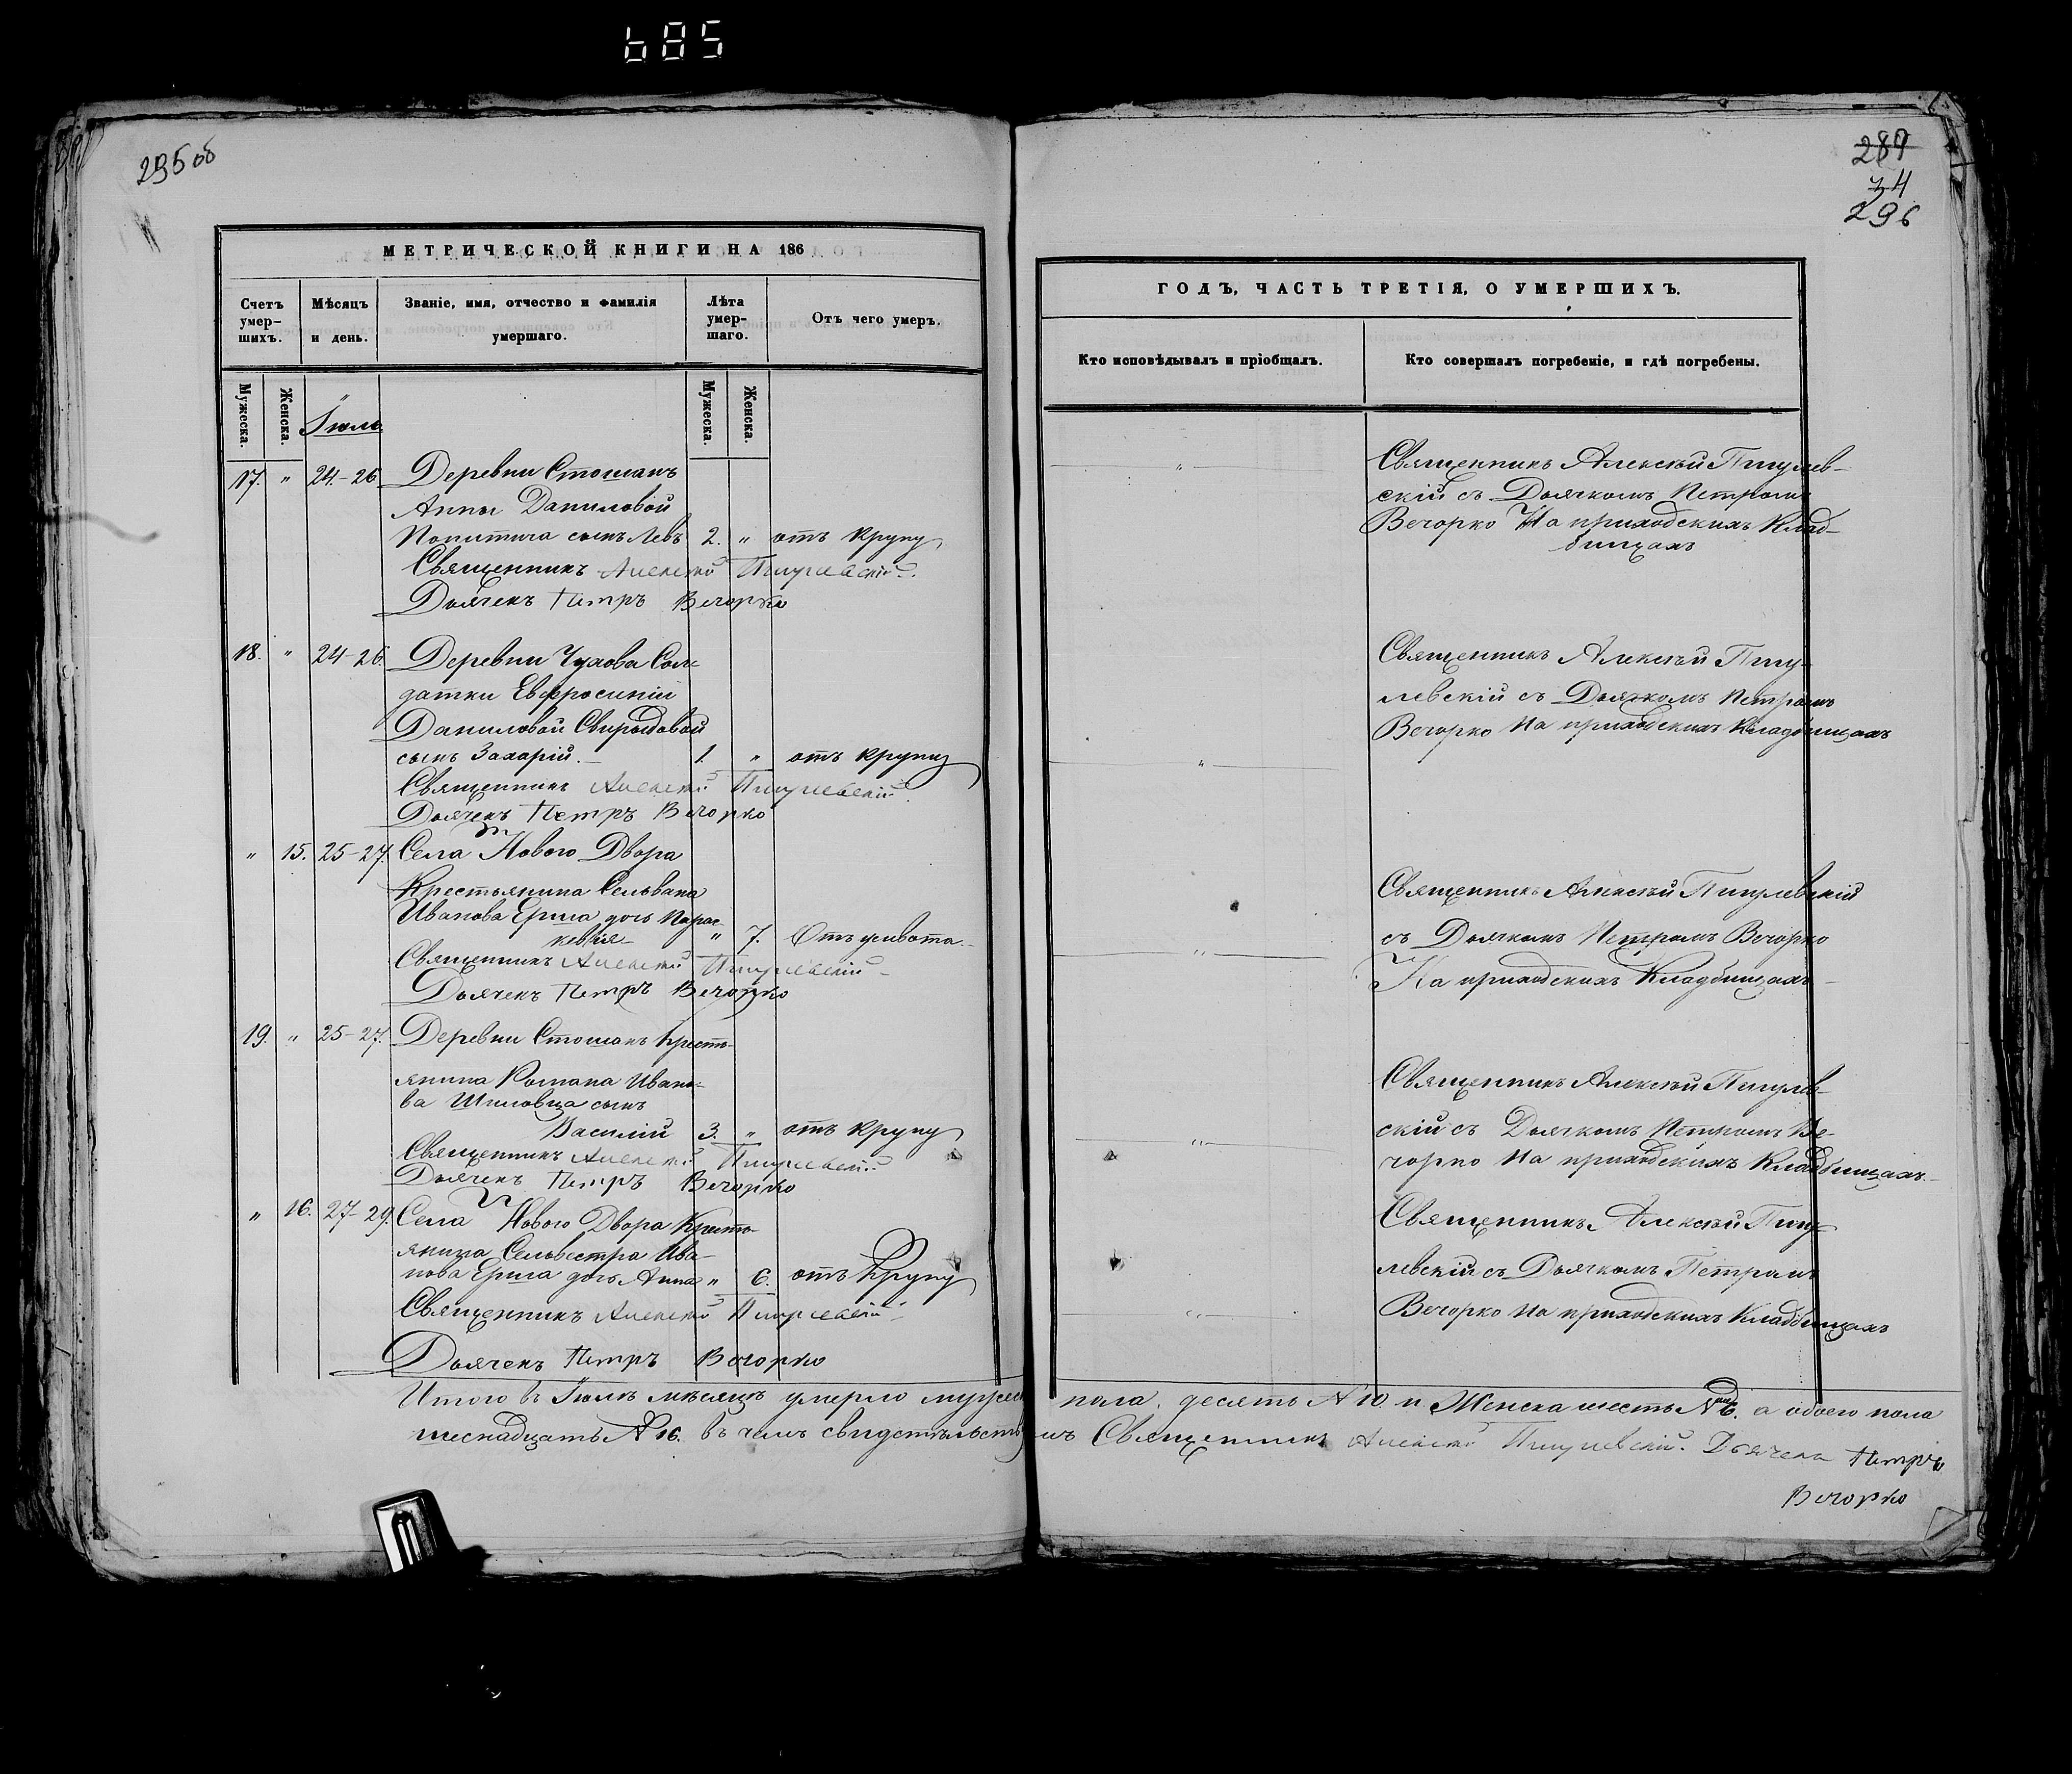 685
295 об
МЕТРИЧЕСКОЙ КНИГИ НА 186
Счетъ умер-шихъ.
Мѣсяцъ и день.
Званіе, имя, отчество и фамилія умершаго.
Лѣта умер-шаго.
Отъ чего умеръ.
Мужеска.
Женска.
Мужеска.
Женска.
Іюль
17. " 24-26. Деревни Стошанъ
Анны Даниловой
Попитича сынъ Левъ 2. " отъ крупу
Священникъ Алексѣй Пигулевскій.
Дьячекъ Петръ Вечорко
18. " 24-26. Деревни Чухова Сол-
датки Евфросиніи
Даниловой Свиридовой
сынъ Захарій. 1. " отъ крупу
Священникъ Алексѣй Пигулевскій.
Дьячекъ Петръ Вечорко
" 15. 25-27. Села Нового Двора
Крестьянина Сельвана
Иванова Ерша дочь Парас-
кевія " 7. Отъ живота.
Священникъ Алексѣй Пигулевскій
Дьячекъ Петръ Вечорко
19. " 25-27. Деревни Стошанъ Кресть-
янина Романа Ивано-
ва Шиловца сынъ
Василій 3. " отъ крупу
Священникъ Алексѣй Пигулевскій
Дьячекъ Петръ Вечорко
" 16. 27-29. Села Нового Двора Кресть-
янина Сельвестра Ива-
нова Ерша дочь Анна " 6. отъ Крупу
Священникъ Алексѣй Пигулевскій
Дьячекъ Петръ Вечорко
Итого въ Іюлѣ мѣсяцѣ умерло мужеска
шеснадцать № 16. въ чемъ свидетельству
289
74
296
ГОДЪ, ЧАСТЬ ТРЕТІЯ, О УМЕРШИХЪ.
Кто исповѣдывалъ и пріобщалъ.
Кто совершалъ погребеніе, и гдѣ погребены.
" Священникъ Алексѣй Пигулев-
скій съ Дьячкомъ Петромъ
Вечорко На приходскихъ Клад-
бищахъ
Священникъ Алексѣй Пигу-
левскій съ Дьячкомъ Петромъ
Вечорко На приходскихъ Кладбищахъ
"
Священникъ Алексѣй Пигулевскій
съ Дьячкомъ Петромъ Вечорко
" На приходскихъ Кладбищахъ
Священникъ Алексѣй Пигулев-
" скій съ Дьячкомъ Петромъ Ве-
чорко На приходскихъ Кладбищахъ.
Священникъ Алексѣй Пигу-
левскій съ Дьячкомъ Петромъ
" Вечорко На приходскихъ Кладбищахъ
пола, десять № 10 и Женска шесть № 6. а обоего пола
мъ Священникъ Алексѣй Пигулевскій. Дьячекъ Петръ
Вечорко